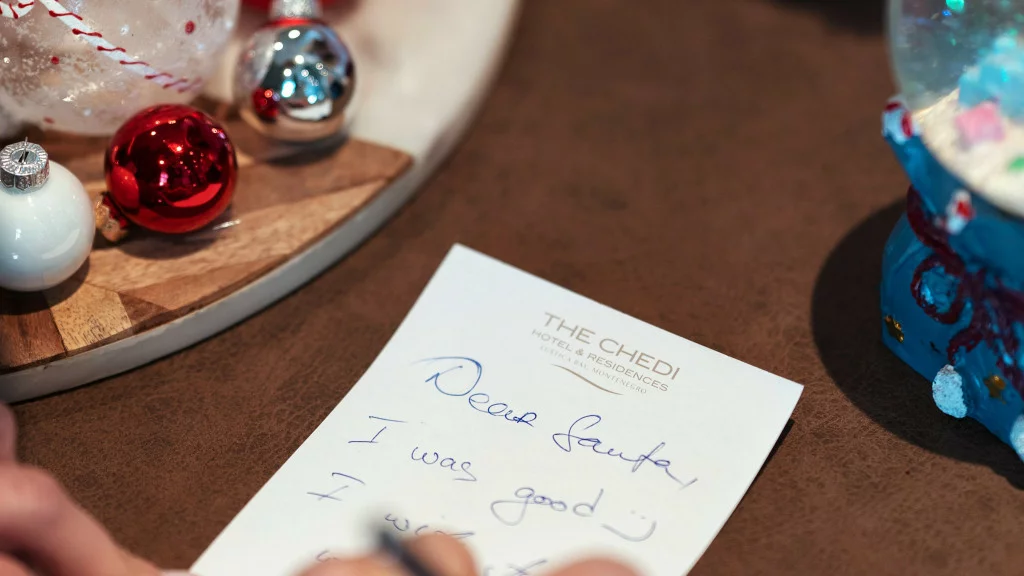 THE CHEDI
HOTEL & RESIDENCES
LUŠTICA BAY, MONTENEGRO
Dear Santa,
I was good :)
I